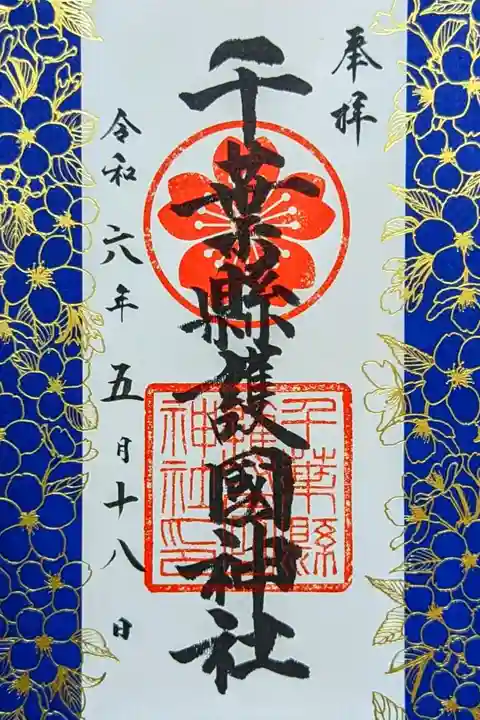 奉拝
千葉縣護國神社
千葉縣護國神社印
令和六年五月十八日